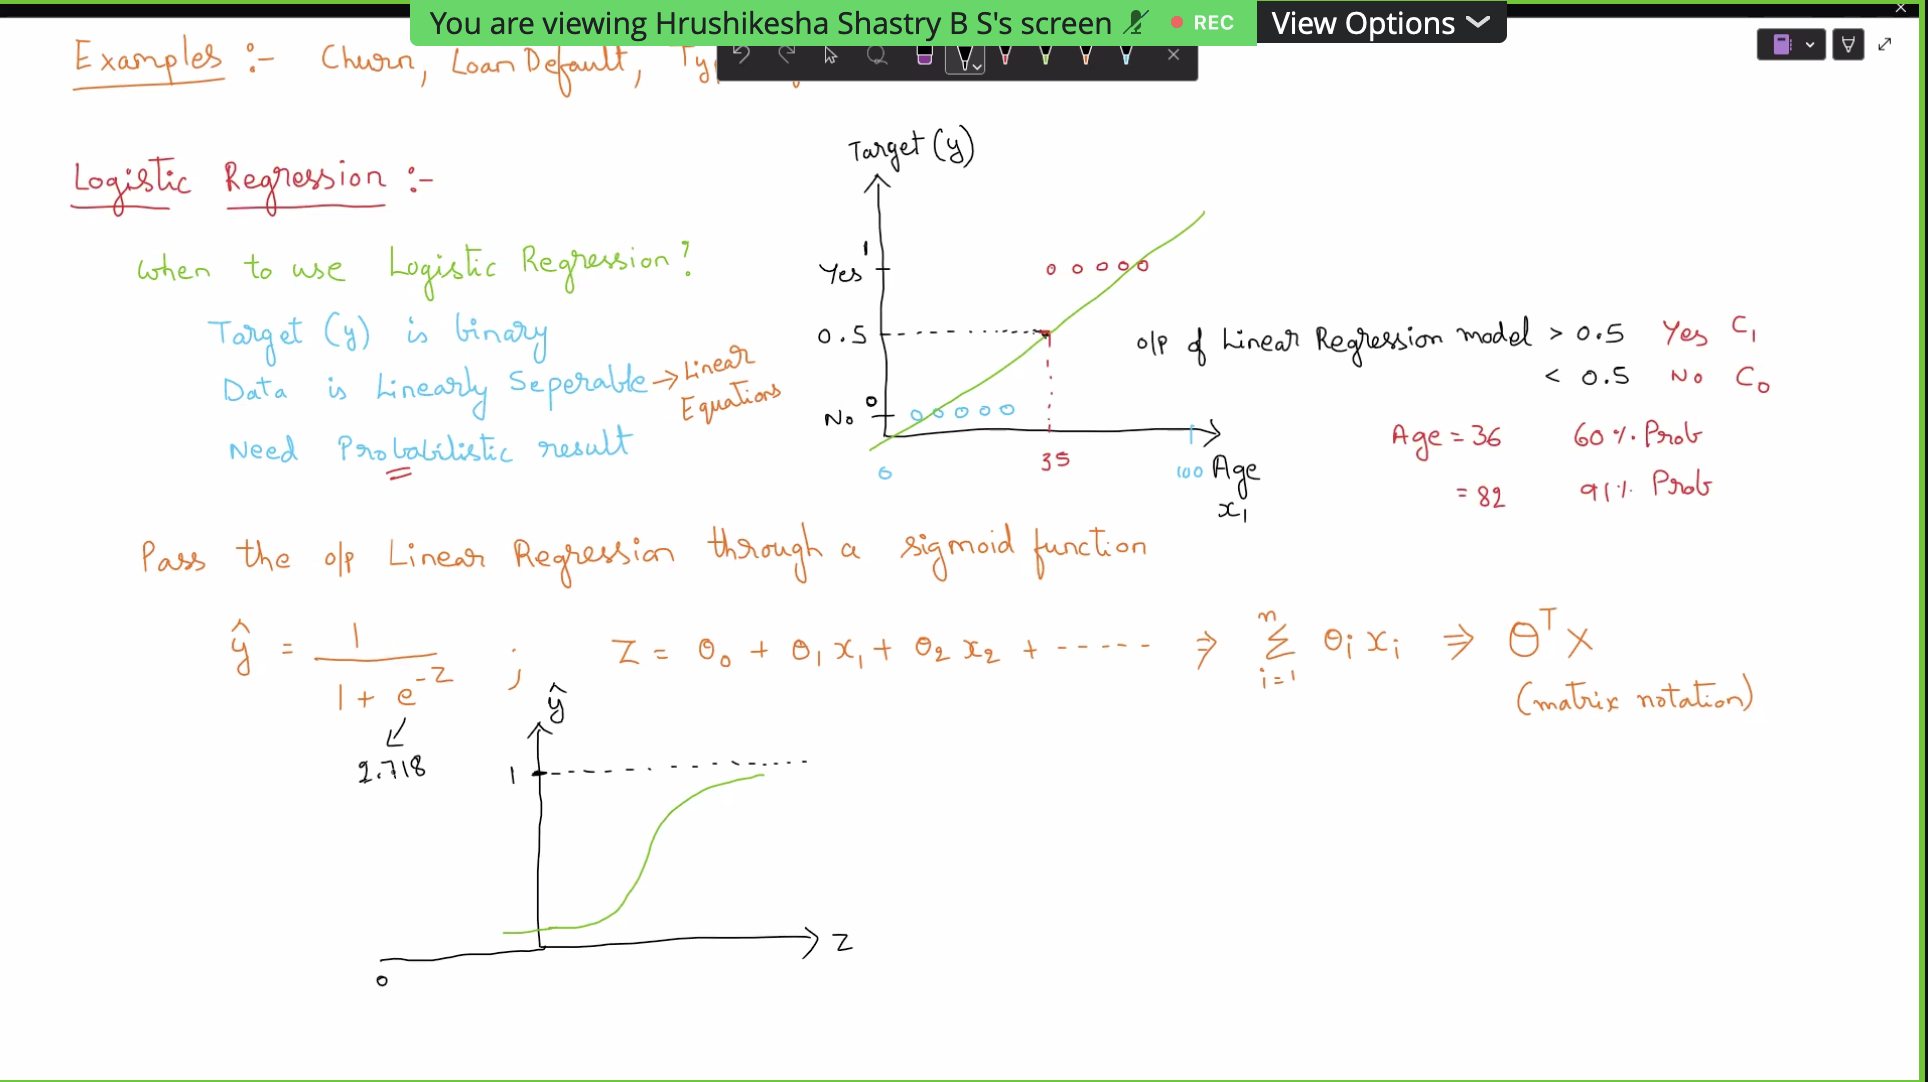 You are viewing Hrushikesha Shastry B S's screen REC View Options
Examples :- Churn, Loan Default,
Logistic Regression :-
When to use Logistic Regression?
Target (y) is binary
Data is Linearly Seperable → Linear Equations
Need Probabilistic result
Target (y)
1
Yes
0.5
0
No
0 35 100 Age
x₁
o/p of Linear Regression model > 0.5 Yes C₁
< 0.5 No C₀
Age = 36 60 % Prob
= 82 91 % Prob
Pass the o/p Linear Regression through a sigmoid function
ŷ = 1 / (1 + e^-z) ; Z = θ₀ + θ₁ x₁ + θ₂ x₂ + ----- ⇒ n Σ i=1 θᵢ xᵢ ⇒ θᵀ X
(matrix notation)
2.718
ŷ
1
Z
0